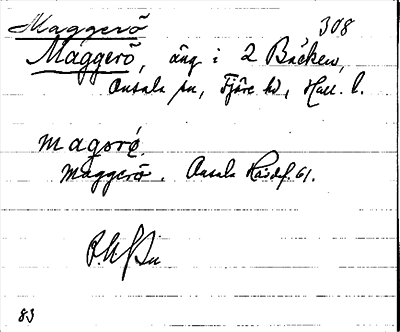 Maggerö
308
Maggerö, äng i 2 Bäcken,
Onsala sn, Fjäre hd, Hall. l.
magǝrö.
Maggerö. Onsala Kaisdf. 61.
83